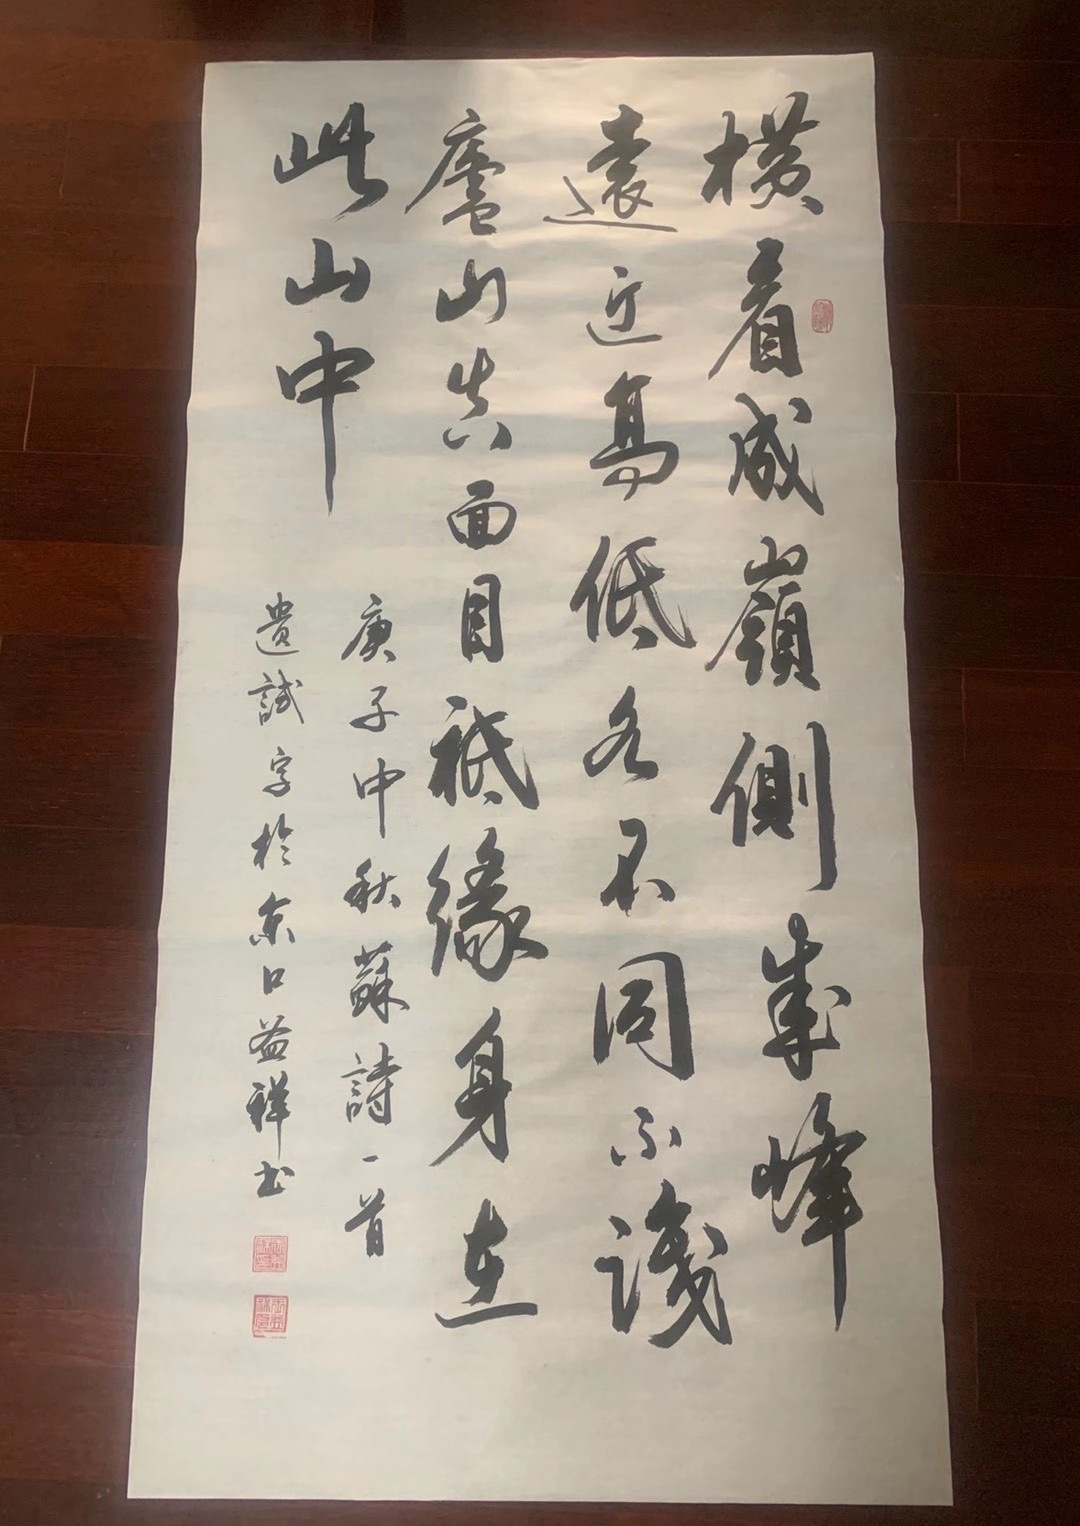 横看成嶺側成峰
遠近高低各不同不識
廬山真面目祗緣身在
此山中
庚子中秋蘇詩一首
字於京口益祥书